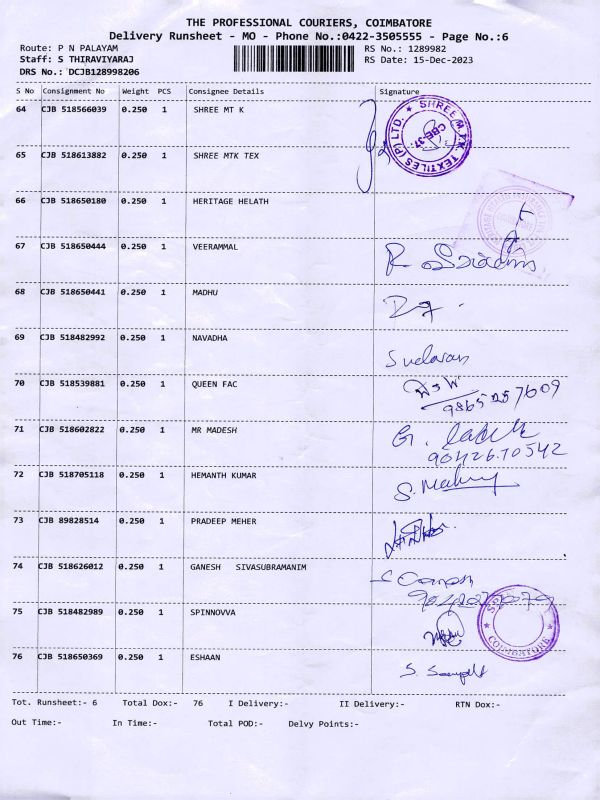 THE PROFESSIONAL COURIERS, COIMBATORE
Delivery Runsheet - MO - Phone No.:0422-3505555 - Page No.:6
Route: P N PALAYAM RS No.: 1289982
Staff: S THIRAVIYARAJ RS Date: 15-Dec-2023
DRS No.: DCJB128998206
S No Consignment No Weight PCS Consignee Details Signature
64 CJB 518566039 0.250 1 SHREE MT K
SHREE M.T.K. TEXTILES (P) LTD. CBE-37.
65 CJB 518613882 0.250 1 SHREE MTK TEX
66 CJB 518650180 0.250 1 HERITAGE HELATH
67 CJB 518650444 0.250 1 VEERAMMAL R
68 CJB 518650441 0.250 1 MADHU
69 CJB 518482992 0.250 1 NAVADHA
70 CJB 518539881 0.250 1 QUEEN FAC
9865257609
71 CJB 518602822 0.250 1 MR MADESH G.
9042670542
72 CJB 518705118 0.250 1 HEMANTH KUMAR S.
73 CJB 89828514 0.250 1 PRADEEP MEHER
74 CJB 518626012 0.250 1 GANESH SIVASUBRAMANIM
75 CJB 518482989 0.250 1 SPINNOVVA
COIMBATORE
76 CJB 518650369 0.250 1 ESHAAN S.
Tot. Runsheet:- 6 Total Dox:- 76 I Delivery:- II Delivery:- RTN Dox:-
Out Time:- In Time:- Total POD:- Delvy Points:-